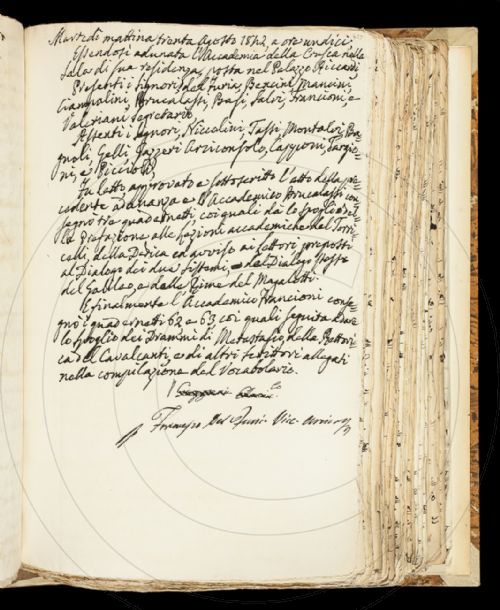 Martedì mattina trenta Agosto 1842 a ore undici
Essendosi adunata l'Accademia della Crusca nella
Sala di sua residenza, posta nel Palazzo Riccardi
Presenti i Signori, del Furia, Bencini, Mancini,
Ciampolini, Brucalassi, Basi, Salvi, Francioni, e
Valeriani Segretario
Assenti i Signori, Niccolini, Tassi, Montalvi, Ba=
gnoli, Gelli, Gazzeri Arciconsolo, Capponi, Targio=
ni, e Piccioli,
Fu letto approvato e sottoscritto l'atto della pre=
cedente adunanza e l'Accademico Brucalassi con
segnò tre quadernetti coi quali dà lo spoglio del=
la Prefazione alle Lezioni accademiche del Torri=
celli, della Dedica ed avviso ai lettori preposti
al Dialogo dei due Sistemi, del Dialogo stesso
del Galileo, e delle Rime del Magalotti.
E finalmente l'Accademico Francioni conse=
gnò i quadernetti 62 e 63 coi quali seguita a dare
lo spoglio dei Drammi di Metastasio, della Rettori=
ca del Cavalcanti, e di altri scrittori allegati
nella compilazione del Vocabolario.
Francesco Del Furia Vice